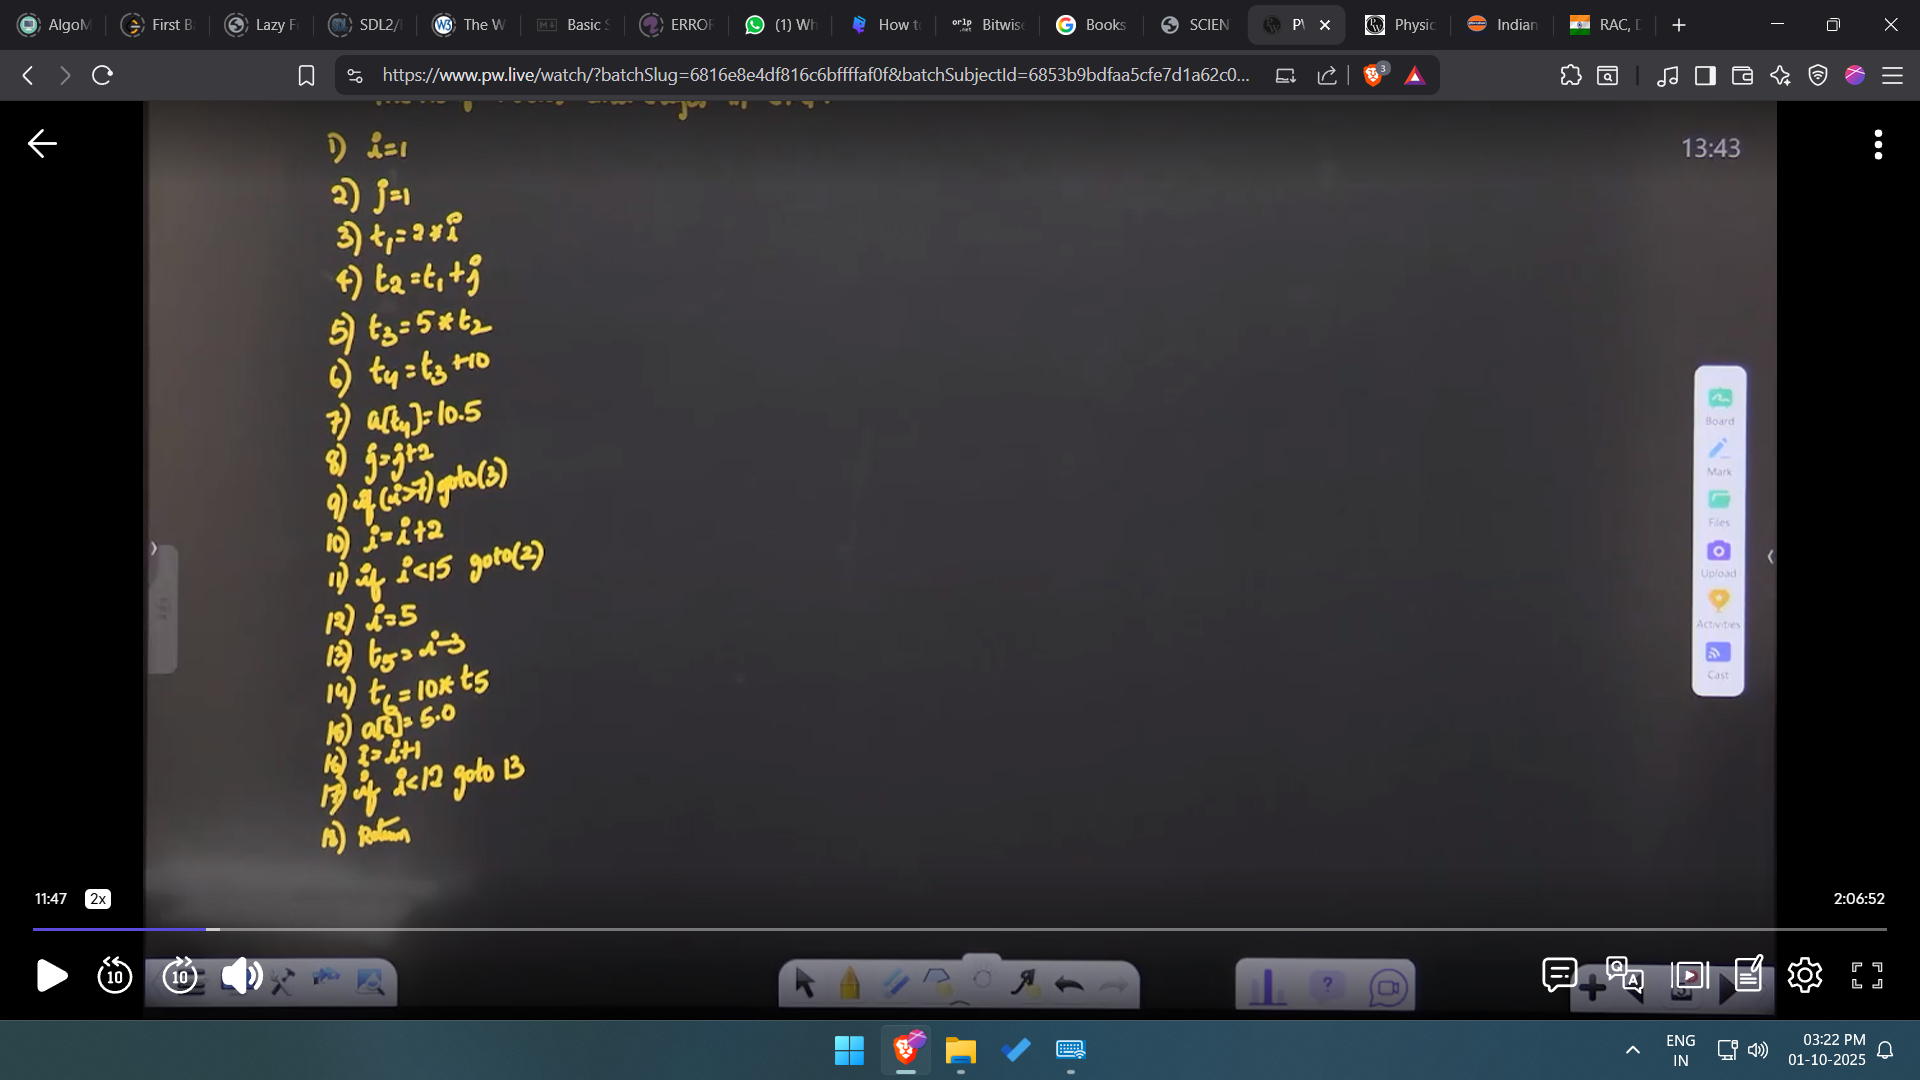 AlgoM
First B
Lazy F
SDL2/
The W
Basic S
ERROR
(1) Wh
How to
Bitwise
Books
SCIEN
PW
Physic
Indian
RAC, D
https://www.pw.live/watch/?batchSlug=6816e8e4df816c6bffffaf0f&batchSubjectId=6853b9bdfaa5cfe7d1a62c0...
3
13:43
1) i=1
2) j=1
3) t1=2*i
4) t2=t1+j
5) t3=5*t2
6) t4=t3+10
7) a[t4]=10.5
8) j=j+2
9) if(i>7)goto(3)
10) i=i+2
11) if i<15 goto(2)
12) i=5
13) t5=i-3
14) t6=10*t5
15) a[6]=5.0
16) i=i+1
17) if i<12 goto 13
18) Return
Board
Mark
Files
Upload
Activities
Cast
11:47
2x
2:06:52
10
10
ENG
IN
03:22 PM
01-10-2025